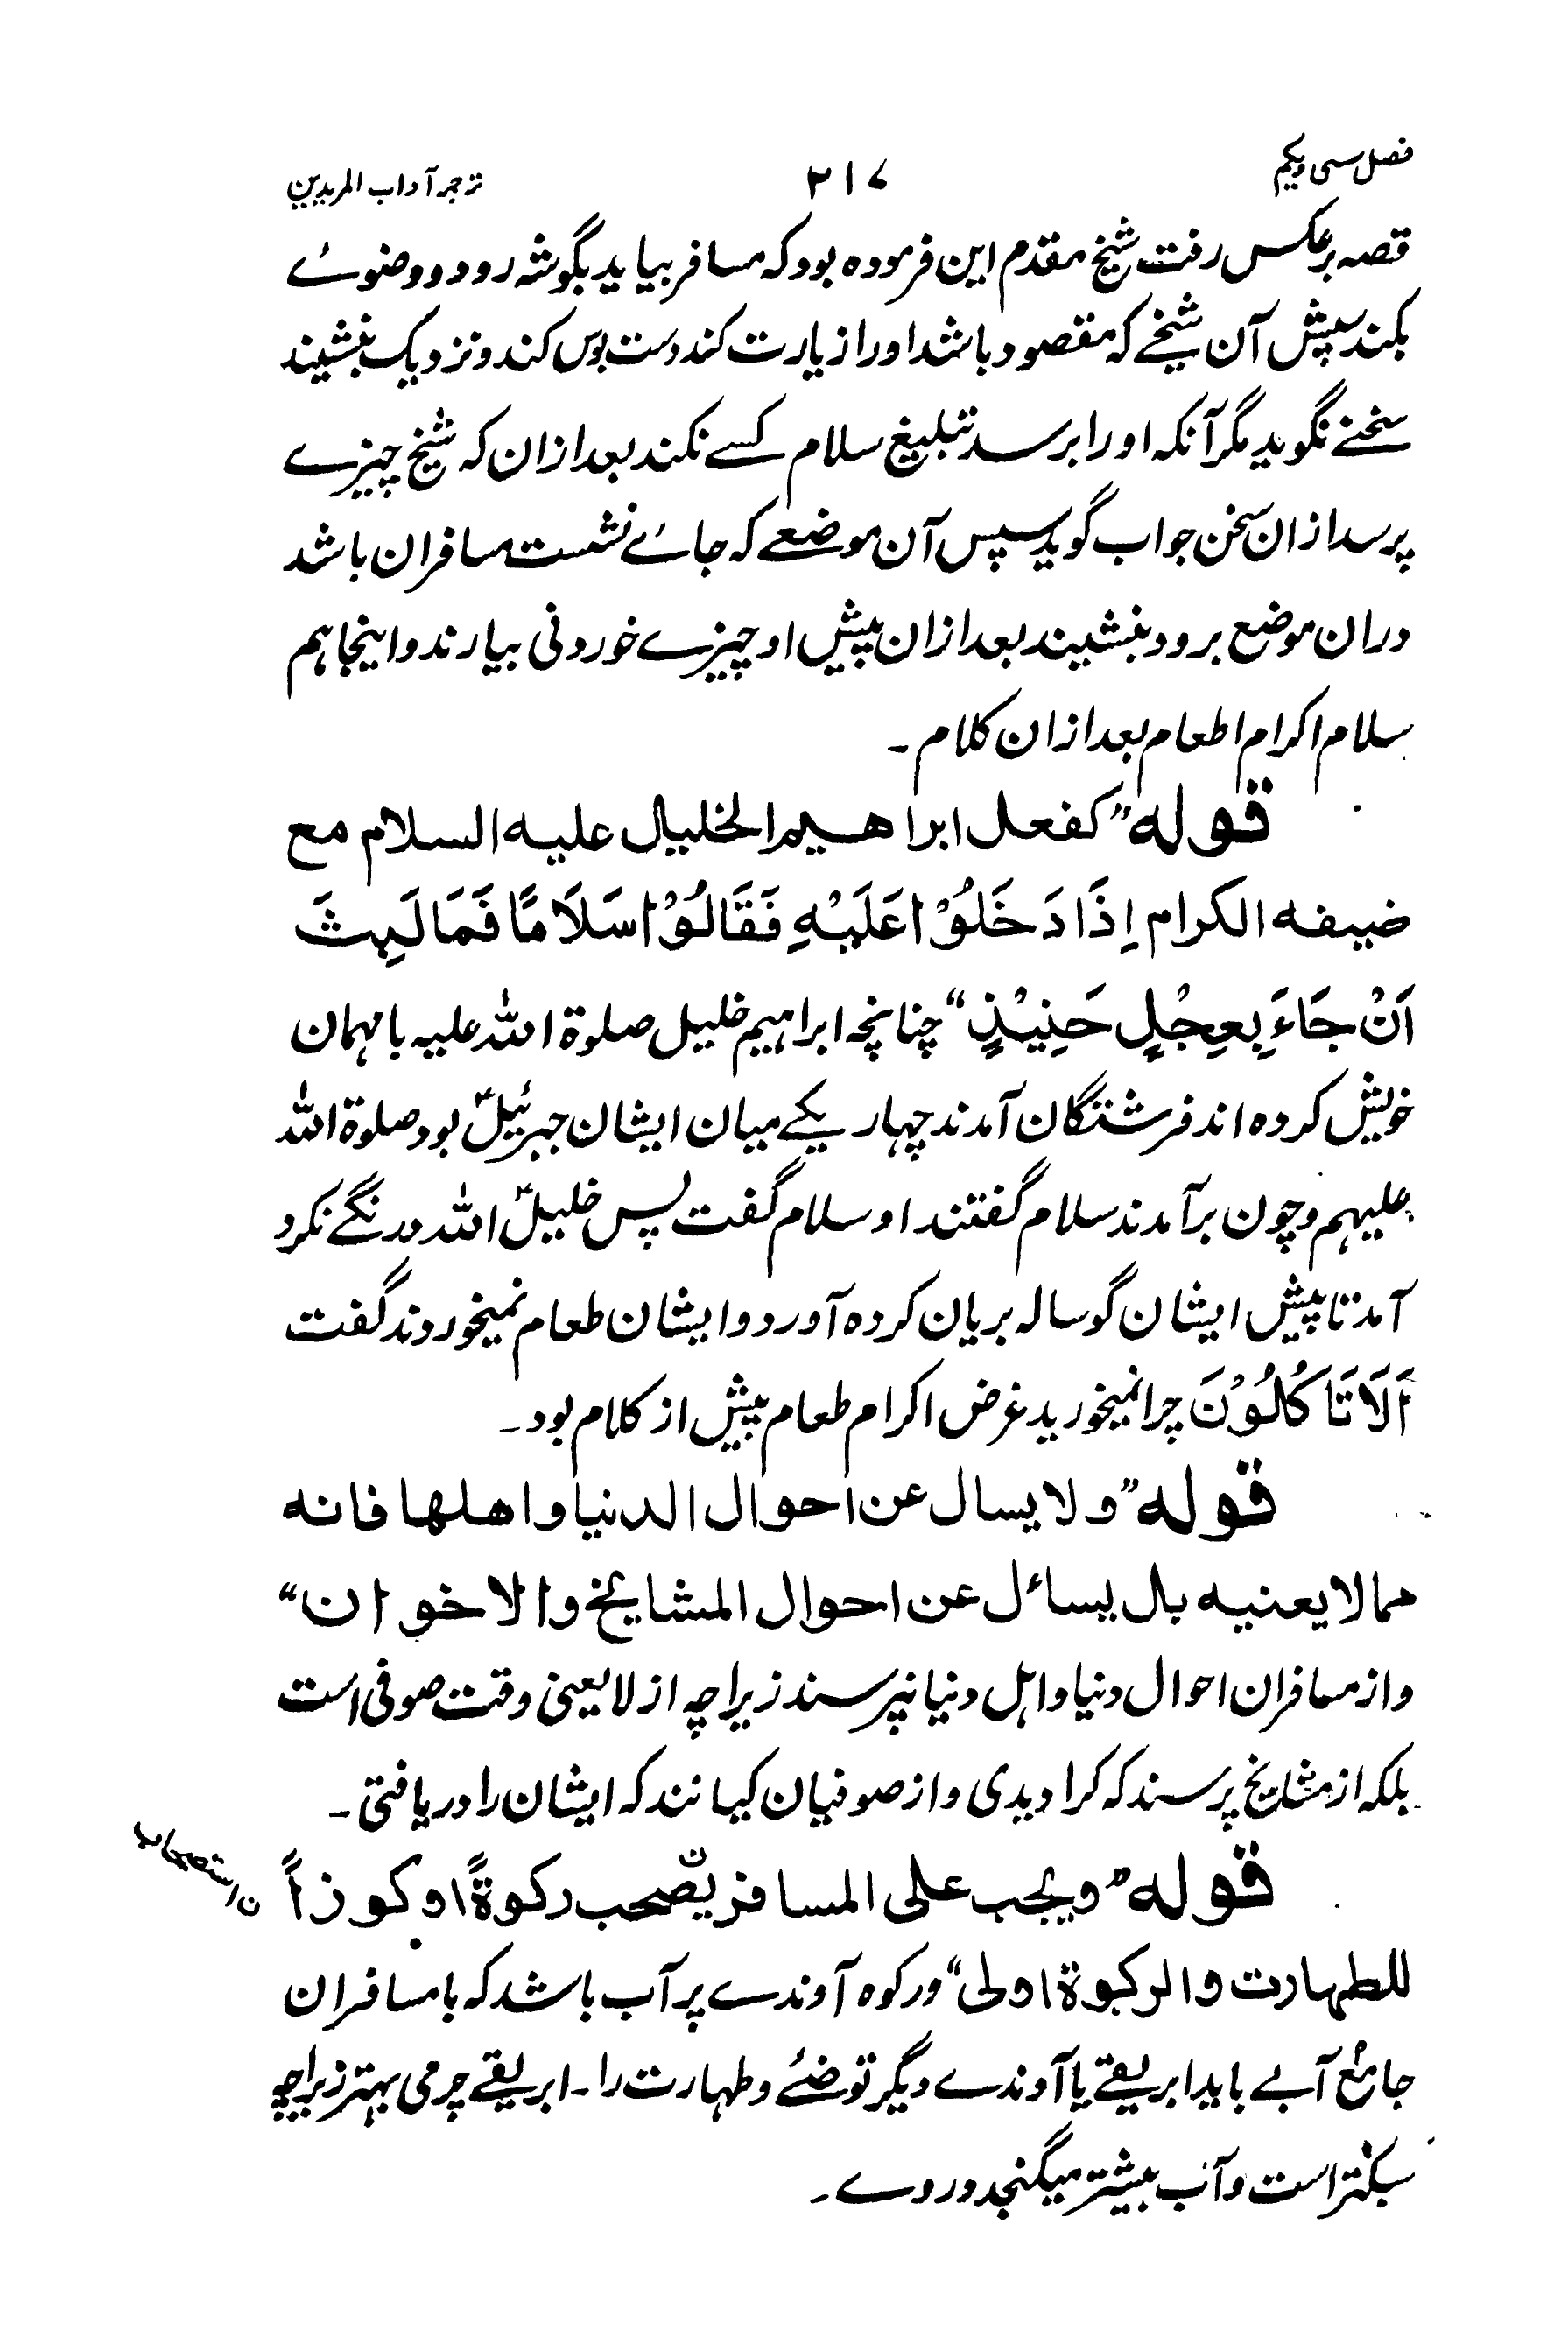 فصل سی ویکم
۲۱۷
ترجمہ آداب المریدین
قصہ برعکس رفت شیخ مقدم این فرمودہ بود کہ مسافر بیاید بگوشہ رود و وضوئے
بکند سپس آن شیخے کہ مقصود باشد اورا زیارت کند دست بوس کند و نزدیک بنشیند
سخنے نگوید مگر آنکہ اورا پرسد تبلیغ سلام کسے نکند بعد ازان کہ شیخ چیزے
پرسد ازان سخن جواب گوید سپس آن موضعے کہ جائے نشست مسافران باشد
دران موضع برود بنشیند بعد ازان پیش او چیزے خوردنی بیارند و اینجا ہم
سلام اکرام اطعام بعد ازان کلام ۔
قولہ ”کفعل ابراھیم الخلیل علیہ السلام مع
ضیفہ الکرام اِذَا دَخَلُوْا عَلَیْہِ فَقَالُوْا سَلَامًا فَمَا لَبِثَ
اَنْ جَاءَ بِعِجْلٍ حَنِیْذٍ“ چنانچہ ابراہیم خلیل صلوۃ اللہ علیہ با مہمان
خویش کردہ اند فرشتگان آمدند چہار یکے میان ایشان جبرئیلؑ بود صلوۃ اللہ
علیہم و چون برآمدند سلام گفتند او سلام گفت پس خلیلؑ اللہ درنگے نکرد
آمد تا پیش ایشان گوسالہ بریان کردہ آورد و ایشان طعام نمیخوردند گفت
اَلَا تَاکُلُوْنَ چرا نمیخورید غرض اکرام طعام پیش از کلام بود ۔
قولہ ”ولا یسال عن احوال الدنیا واھلھا فانہ
مما لا یعنیہ بل یسائل عن احوال المشایخ والاخوان“
و از مسافران احوال دنیا و اہل دنیا نپرسند زیراچہ از لایعنی وقت صوفی است
بلکہ از مشایخ پرسند کہ کرا دیدی و از صوفیان کیانند کہ ایشان را دریافتی ۔
قولہ ”ویجب علی المسافر یصحب رکوۃً اوکوزاً
للطہارت والرکوۃ اولی“ و رکوہ آوندے پر آب باشد کہ با مسافران
جائع آبے باید ابریقے یا آوندے دیگر توضئے و طہارت را ۔ ابریقے چرمی بہتر زیراچہ
سبکتر است و آب بیشتر میگنجد دروے ۔